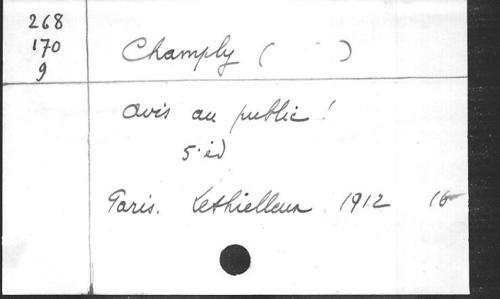 268
170
9
Champly ( )
Avis au public !
5. éd
Paris. Lethielleux 1912 16